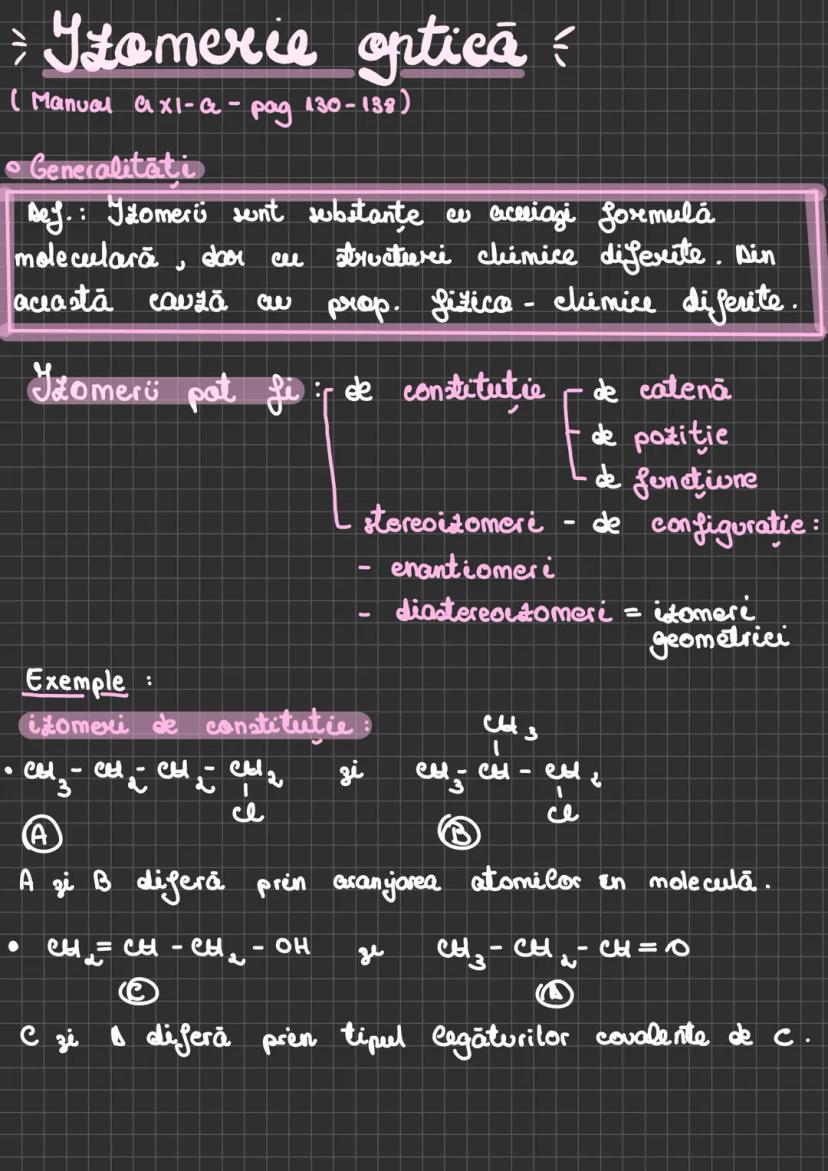 Izomerie optică
(Manual a XI-a - pag 130-138)
• Generalități
Def.: Izomerii sunt substanțe cu aceiași formulă
moleculară, dar cu structuri chimice diferite. Din
această cauză au prop. fizico - chimice diferite.
Izomerii pot fi: de constituție de catenă
de poziție
de funcțiune
stereoizomeri - de configurație:
- enantiomeri
- diastereoizomeri = izomeri
geometrici
Exemple:
izomeri de constituție:
CH3
• CH3 - CH2 - CH2 - CH2 și CH3 - CH - CH2
Cl Cl
A B
A și B diferă prin aranjarea atomilor în moleculă.
• CH2 = CH - CH2 - OH și CH3 - CH2 - CH = O
C D
C și D diferă prin tipul legăturilor covalente de C.